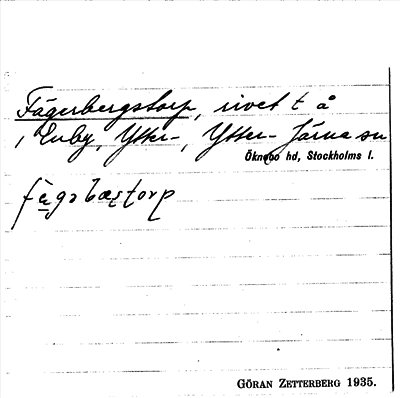 Fägerbergstorp, rivet t å
, Enby, Ytter-, Ytter-Järna sn
Öknebo hd, Stockholms l.
fägsbærtorp
GÖRAN ZETTERBERG 1935.